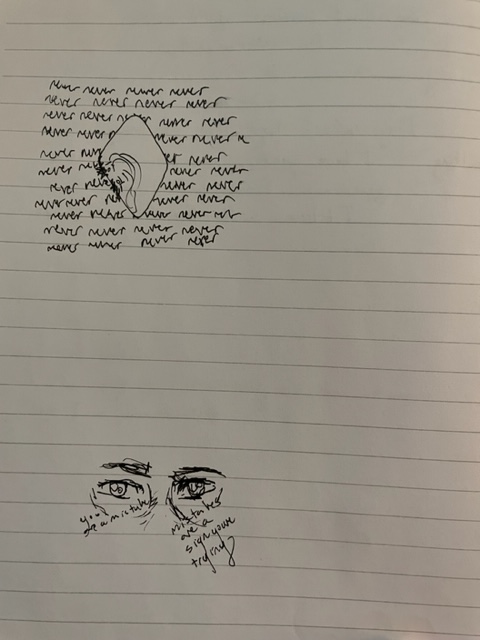 never never never never
never never never never
never never never never never
never never never never n
never never never never
never never never never
never never never never
never never never never never
never never never never nev
never never never never
never never never never
you're a mistake
mistakes
are a
sign you're
trying